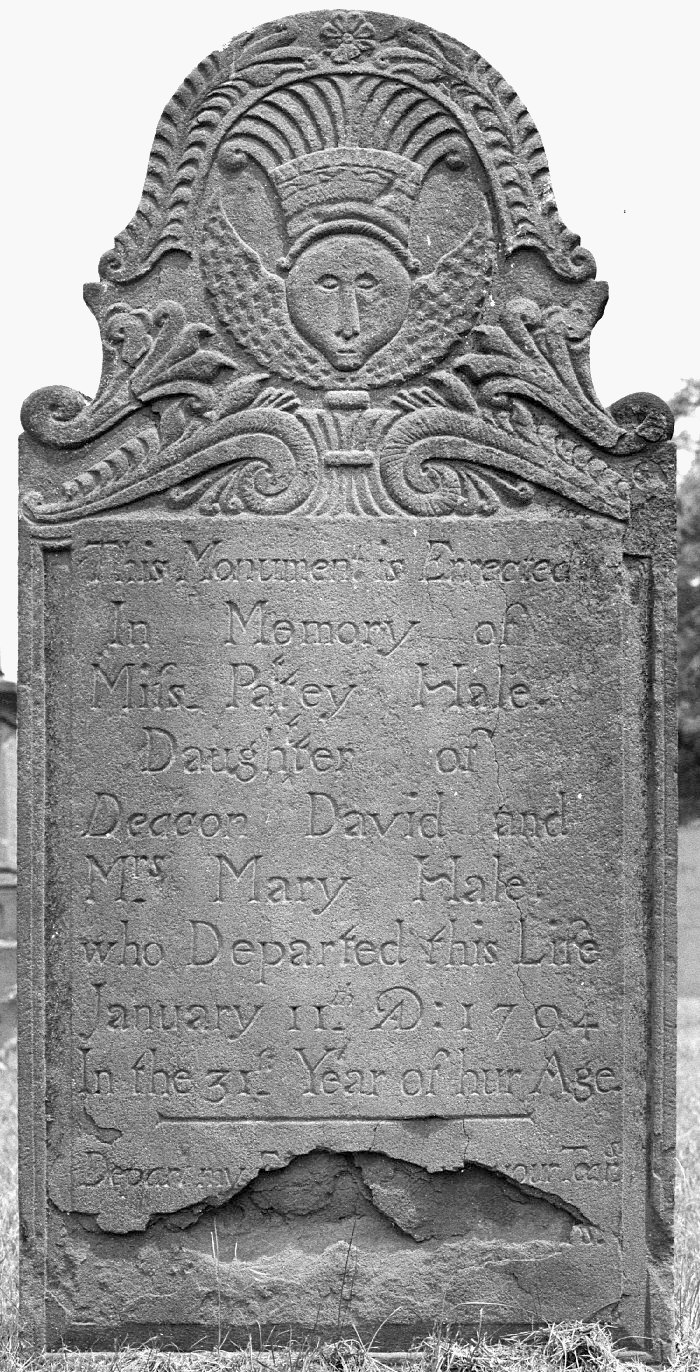 This Monument is Errected
In Memory of
Miſs. Patey Hale.
Daughter of
Deacon David and
M.rs Mary Hale.
who Departed this Life
January 11.th AD: 1794
In the 31.st Year of hur Age
Depart my your Tears